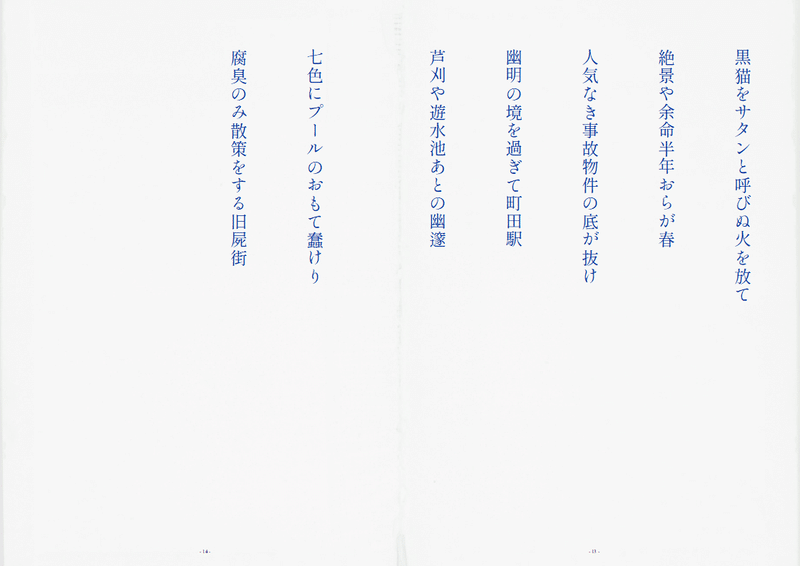 黒猫をサタンと呼びぬ火を放て
絶景や余命半年おらが春
人気なき事故物件の底が抜け
幽明の境を過ぎて町田駅
芦刈や遊水池あとの幽邃
七色にプールのおもて蠢けり
腐臭のみ散策をする旧屍街